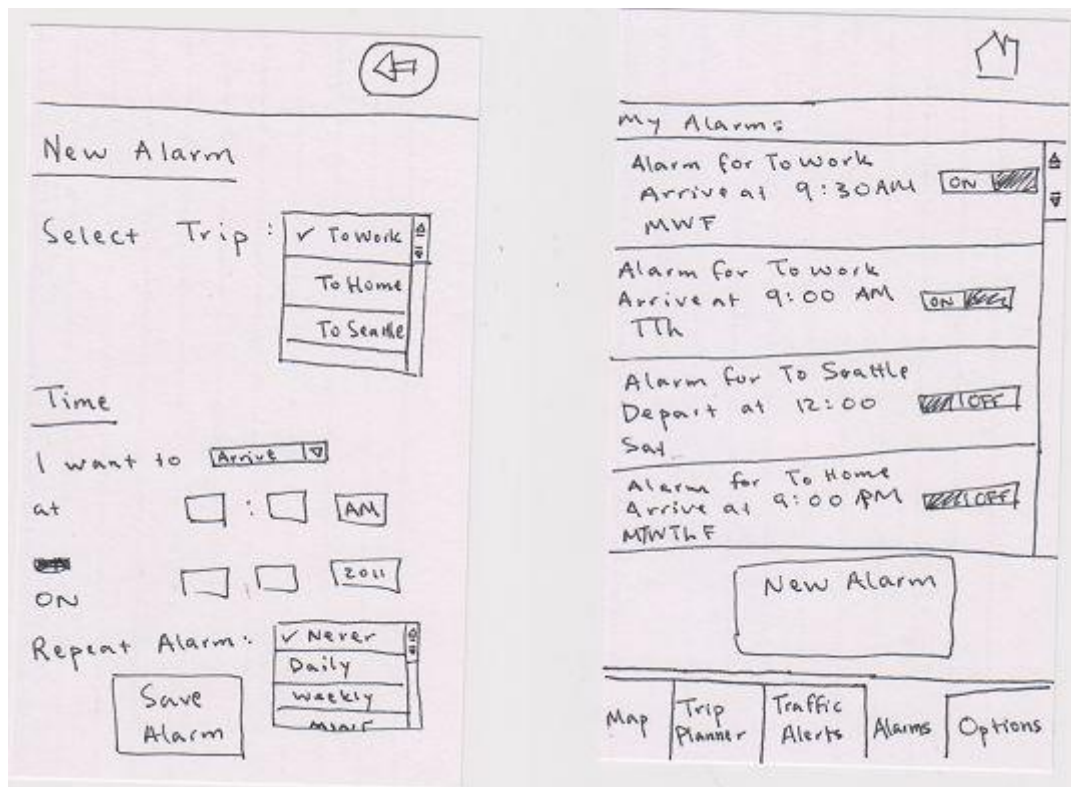 New Alarm
Select Trip:
✓ To Work
To Home
To Seattle
Time
I want to Arrive
at : AM
ON 2011
Repeat Alarm:
✓ Never
Daily
Weekly
Save
Alarm
My Alarms
Alarm for To Work
Arrive at 9:30 AM ON
MWF
Alarm for To Work
Arrive at 9:00 AM ON
TTh
Alarm for To Seattle
Depart at 12:00 OFF
Sat
Alarm for To Home
Arrive at 9:00 PM OFF
MTWThF
New Alarm
Map
Trip
Planner
Traffic
Alerts
Alarms
Options